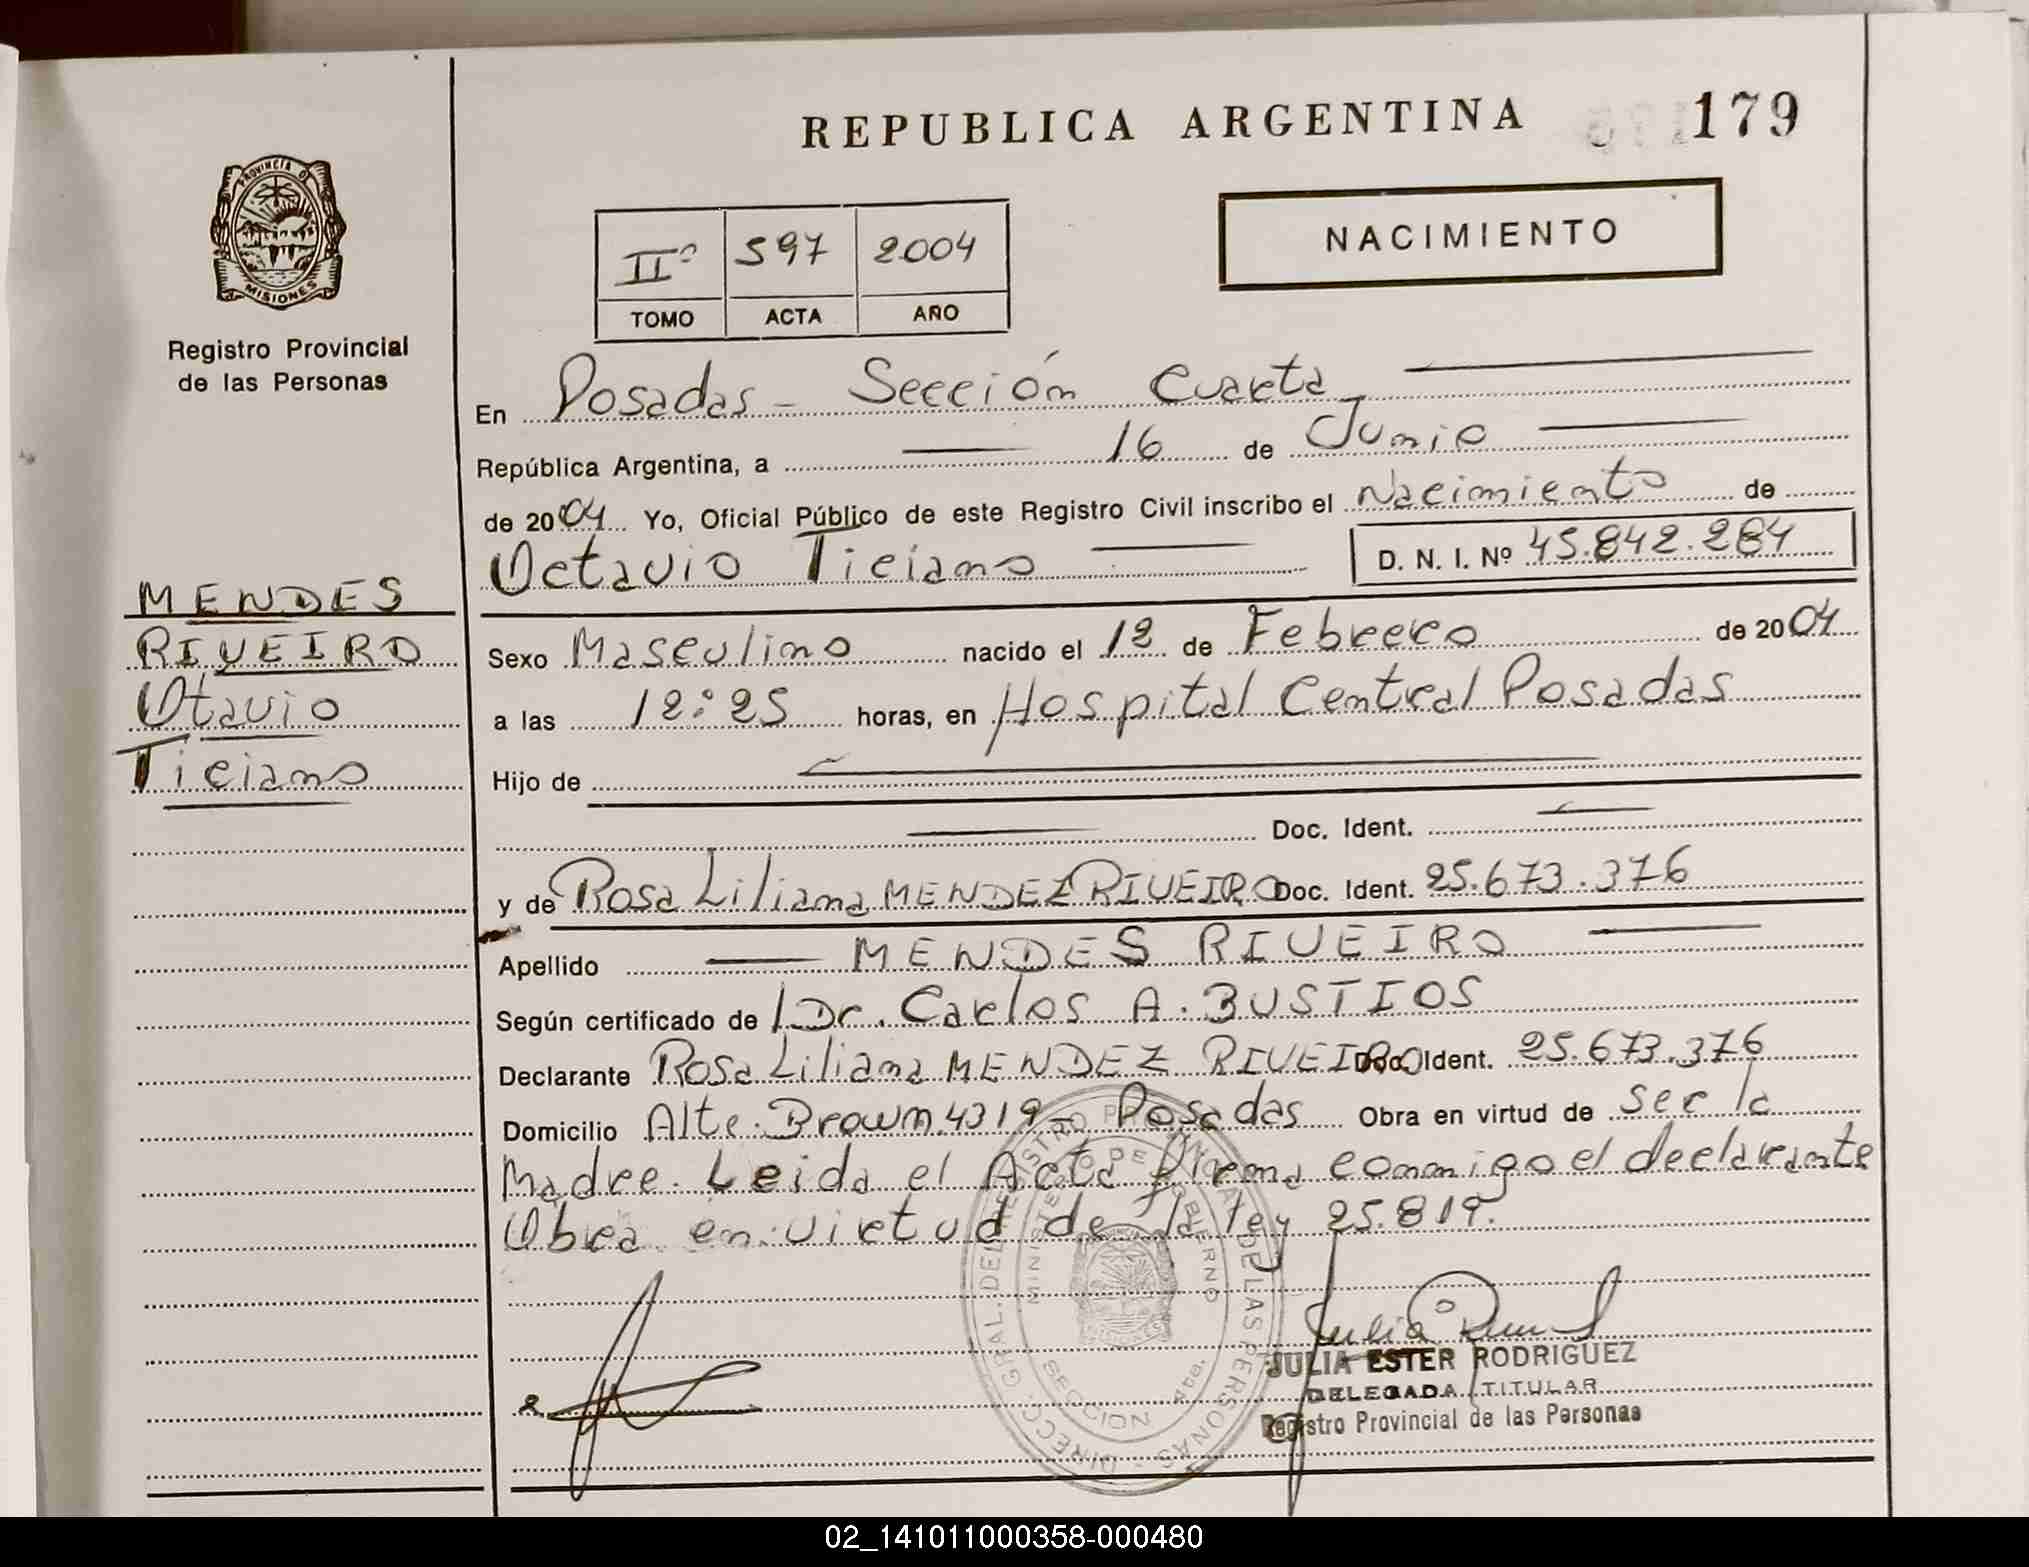 REPUBLICA ARGENTINA 179
NACIMIENTO
IIº 597 2004
TOMO ACTA AÑO
PROVINCIA D
MISIONES
Registro Provincial
de las Personas
En Posadas - Sección Cuarta
República Argentina, a 16 de Junio
de 2004 Yo, Oficial Público de este Registro Civil inscribo el Nacimiento de
Octavio Ticiano D. N. I. Nº 45.842.284
MENDES
RIVEIRO
Otavio
Ticiano
Sexo Masculino nacido el 12 de Febrero de 2004
a las 12:25 horas, en Hospital Central Posadas
Hijo de
Doc. Ident.
y de Rosa Liliana MENDEZ RIVEIRO Doc. Ident. 25.673.376
Apellido MENDES RIVEIRO
Según certificado de Dr. Carlos A. BUSTIOS
Declarante Rosa Liliana MENDEZ RIVEIRO Doc. Ident. 25.673.376
Domicilio Alte. Brown 4319 - Posadas Obra en virtud de ser la
Madre. Leida el Acta firma conmigo el declarante
Obra en virtud de la ley 25.819.
DIRECC. GRAL. DEL REGISTRO PROVINCIAL DE LAS PERSONAS
MINISTERIO DE GOBIERNO
SECCION 4ta.
JULIA ESTER RODRIGUEZ
DELEGADA TITULAR
Registro Provincial de las Personas
02_141011000358-000480